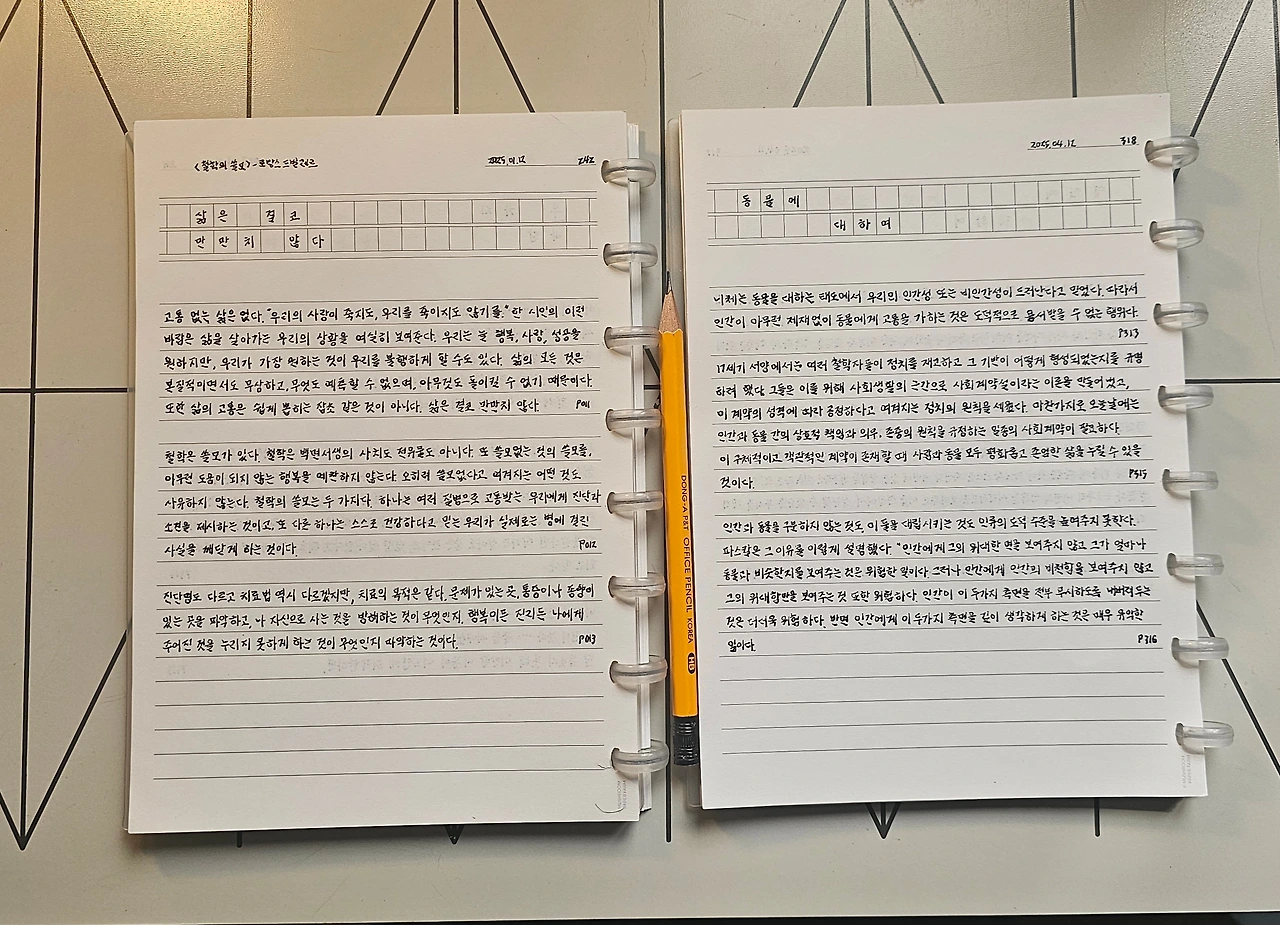 <철학의 쓸모> - 로랑스 드빌레르
2025.01.12
242
삶은 결코
만만치 않다
고통 없는 삶은 없다. "우리의 사랑이 죽지도, 우리를 죽이지도 않기를." 한 시인의 이런
바람은 삶을 살아가는 우리의 상황을 여실히 보여준다. 우리는 늘 행복, 사랑, 성공을
원하지만, 우리가 가장 원하는 것이 우리를 불행하게 할 수도 있다. 삶의 모든 것은
본질적이면서도 무상하고, 무엇도 예측할 수 없으며, 아무것도 돌이킬 수 없기 때문이다.
또한 삶의 고통은 쉽게 뽑히는 잡초 같은 것이 아니다. 삶은 결코 만만치 않다. P011
철학은 쓸모가 있다. 철학은 백면서생의 사치도 전유물도 아니다. 또 쓸모없는 것의 쓸모를,
아무런 도움이 되지 않는 행복을 예찬하지 않는다. 오히려 쓸모없다고 여겨지는 어떤 것도
사유하지 않는다. 철학의 쓸모는 두 가지다. 하나는 여러 질병으로 고통받는 우리에게 진단과
소견을 제시하는 것이고, 또 다른 하나는 스스로 건강하다고 믿는 우리가 실제로는 병에 걸린
사실을 깨닫게 하는 것이다. P012
진단명도 다르고 치료법 역시 다르겠지만, 치료의 목적은 같다. 문제가 있는 곳, 통증이나 동상이
있는 곳을 파악하고, 나 자신으로 사는 것을 방해하는 것이 무엇인지, 행복이든 진리든 나에게
주어진 것을 누리지 못하게 하는 것이 무엇인지 파악하는 것이다. P013
2025.04.12
318
동물에
대하여
니체는 동물을 대하는 태도에서 우리의 인간성 또는 비인간성이 드러난다고 믿었다. 따라서
인간이 아무런 제재없이 동물에게 고통을 가하는 것은 도덕적으로 용서받을 수 없는 행위다.
P313
17세기 서양에서는 여러 철학자들이 정치를 재고하고 그 기반이 어떻게 형성되었는지를 규명
하려 했다. 그들은 이를 위해 사회생활의 근간으로 사회계약설이라는 이론을 만들어냈고,
이 계약의 성격에 따라 공정하다고 여겨지는 정치의 원칙을 세웠다. 마찬가지로 오늘날에는
인간과 동물 간의 상호적 책임과 의무, 존중의 원칙을 규정하는 일종의 사회계약이 필요하다.
이 구체적이고 객관적인 계약이 존재할 때 사람과 동물 모두 평화롭고 존엄한 삶을 누릴 수 있을
것이다. P315
인간과 동물을 구분하지 않는 것도, 이 둘을 대립시키는 것도 인류의 도덕 수준을 높여주지 못한다.
파스칼은 그 이유를 이렇게 설명했다. "인간에게 그의 위대한 면을 보여주지 않고 그가 얼마나
동물과 비슷한지를 보여주는 것은 위험한 일이다. 그러나 인간에게 인간의 비천함을 보여주지 않고
그의 위대함만을 보여주는 것 또한 위험하다. 인간이 이 두가지 측면을 전부 무시하도록 내버려두는
것은 더더욱 위험하다. 반면 인간에게 이 두가지 측면을 깊이 생각하게 하는 것은 매우 유익한
일이다. P316
DONG-A P&T OFFICE PENCIL KOREA HB